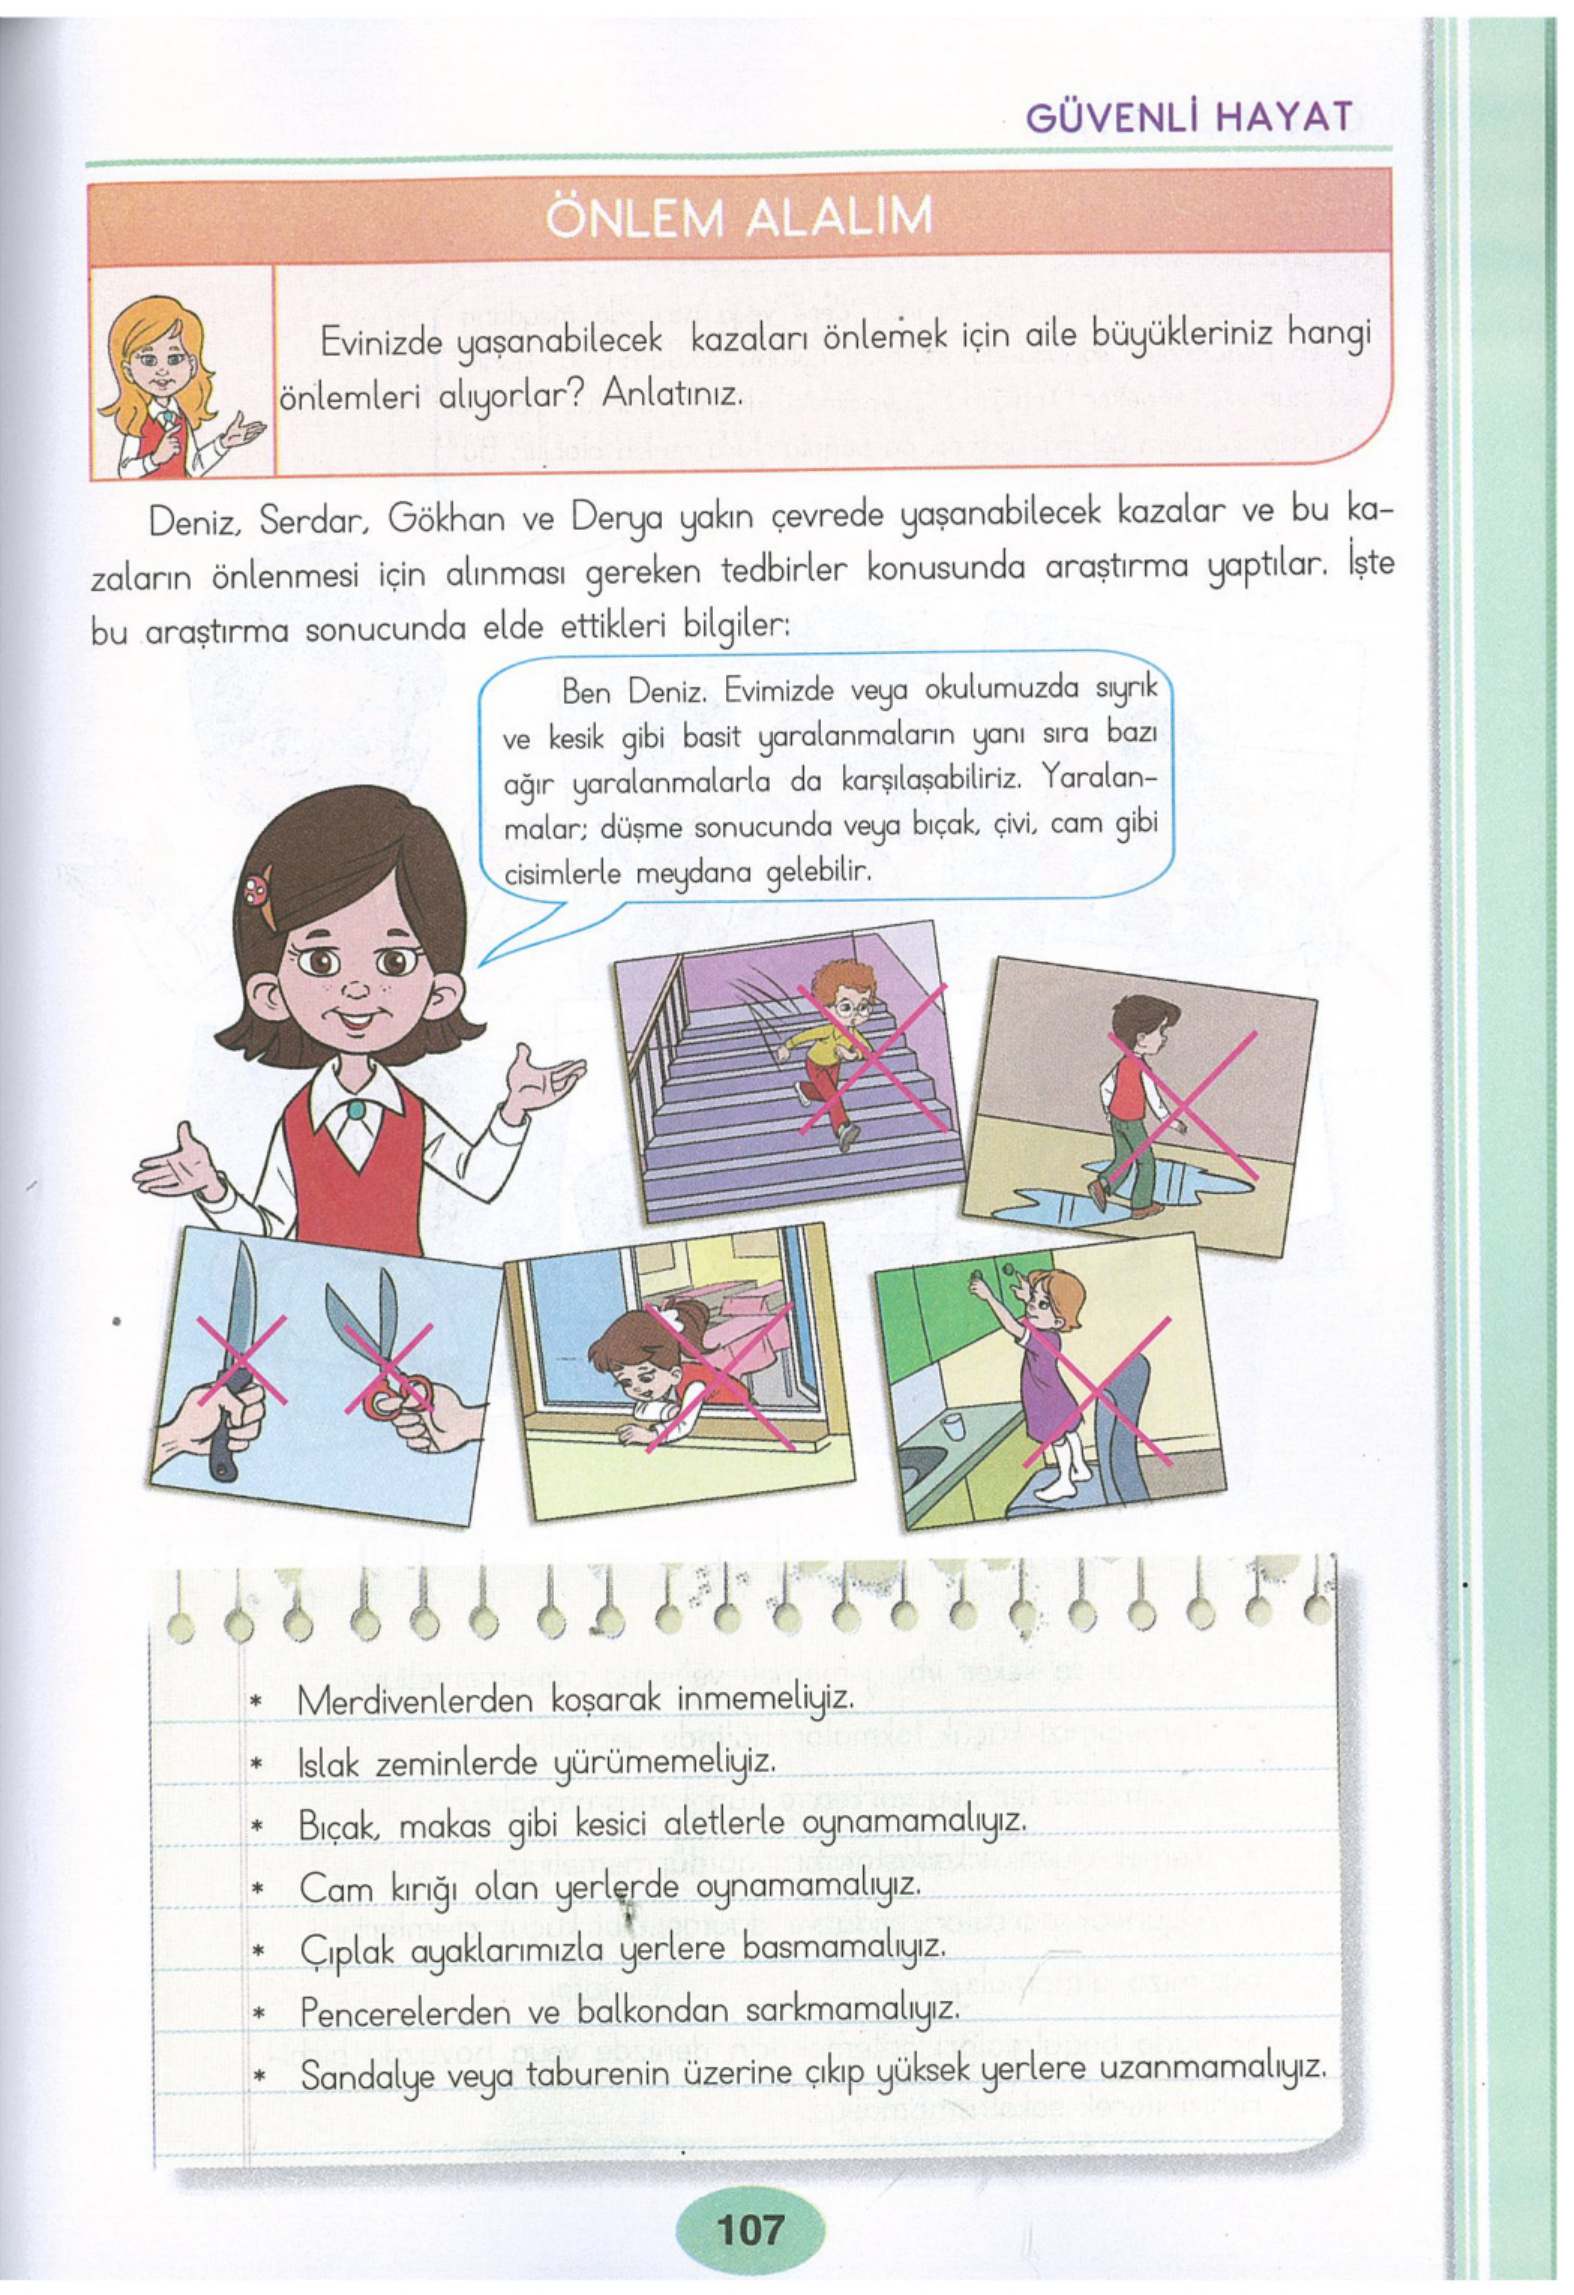 GÜVENLİ HAYAT
ÖNLEM ALALIM
Evinizde yaşanabilecek kazaları önlemek için aile büyükleriniz hangi
önlemleri alıyorlar? Anlatınız.
Deniz, Serdar, Gökhan ve Derya yakın çevrede yaşanabilecek kazalar ve bu ka-
zaların önlenmesi için alınması gereken tedbirler konusunda araştırma yaptılar. İşte
bu araştırma sonucunda elde ettikleri bilgiler:
Ben Deniz. Evimizde veya okulumuzda sıyrık
ve kesik gibi basit yaralanmaların yanı sıra bazı
ağır yaralanmalarla da karşılaşabiliriz. Yaralan-
malar; düşme sonucunda veya bıçak, çivi, cam gibi
cisimlerle meydana gelebilir.
* Merdivenlerden koşarak inmemeliyiz.
* Islak zeminlerde yürümemeliyiz.
* Bıçak, makas gibi kesici aletlerle oynamamalıyız.
* Cam kırığı olan yerlerde oynamamalıyız.
* Çıplak ayaklarımızla yerlere basmamalıyız.
* Pencerelerden ve balkondan sarkmamalıyız.
* Sandalye veya taburenin üzerine çıkıp yüksek yerlere uzanmamalıyız.
107